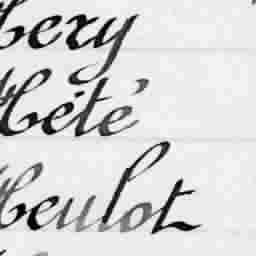 Hery
Hété
Heulot